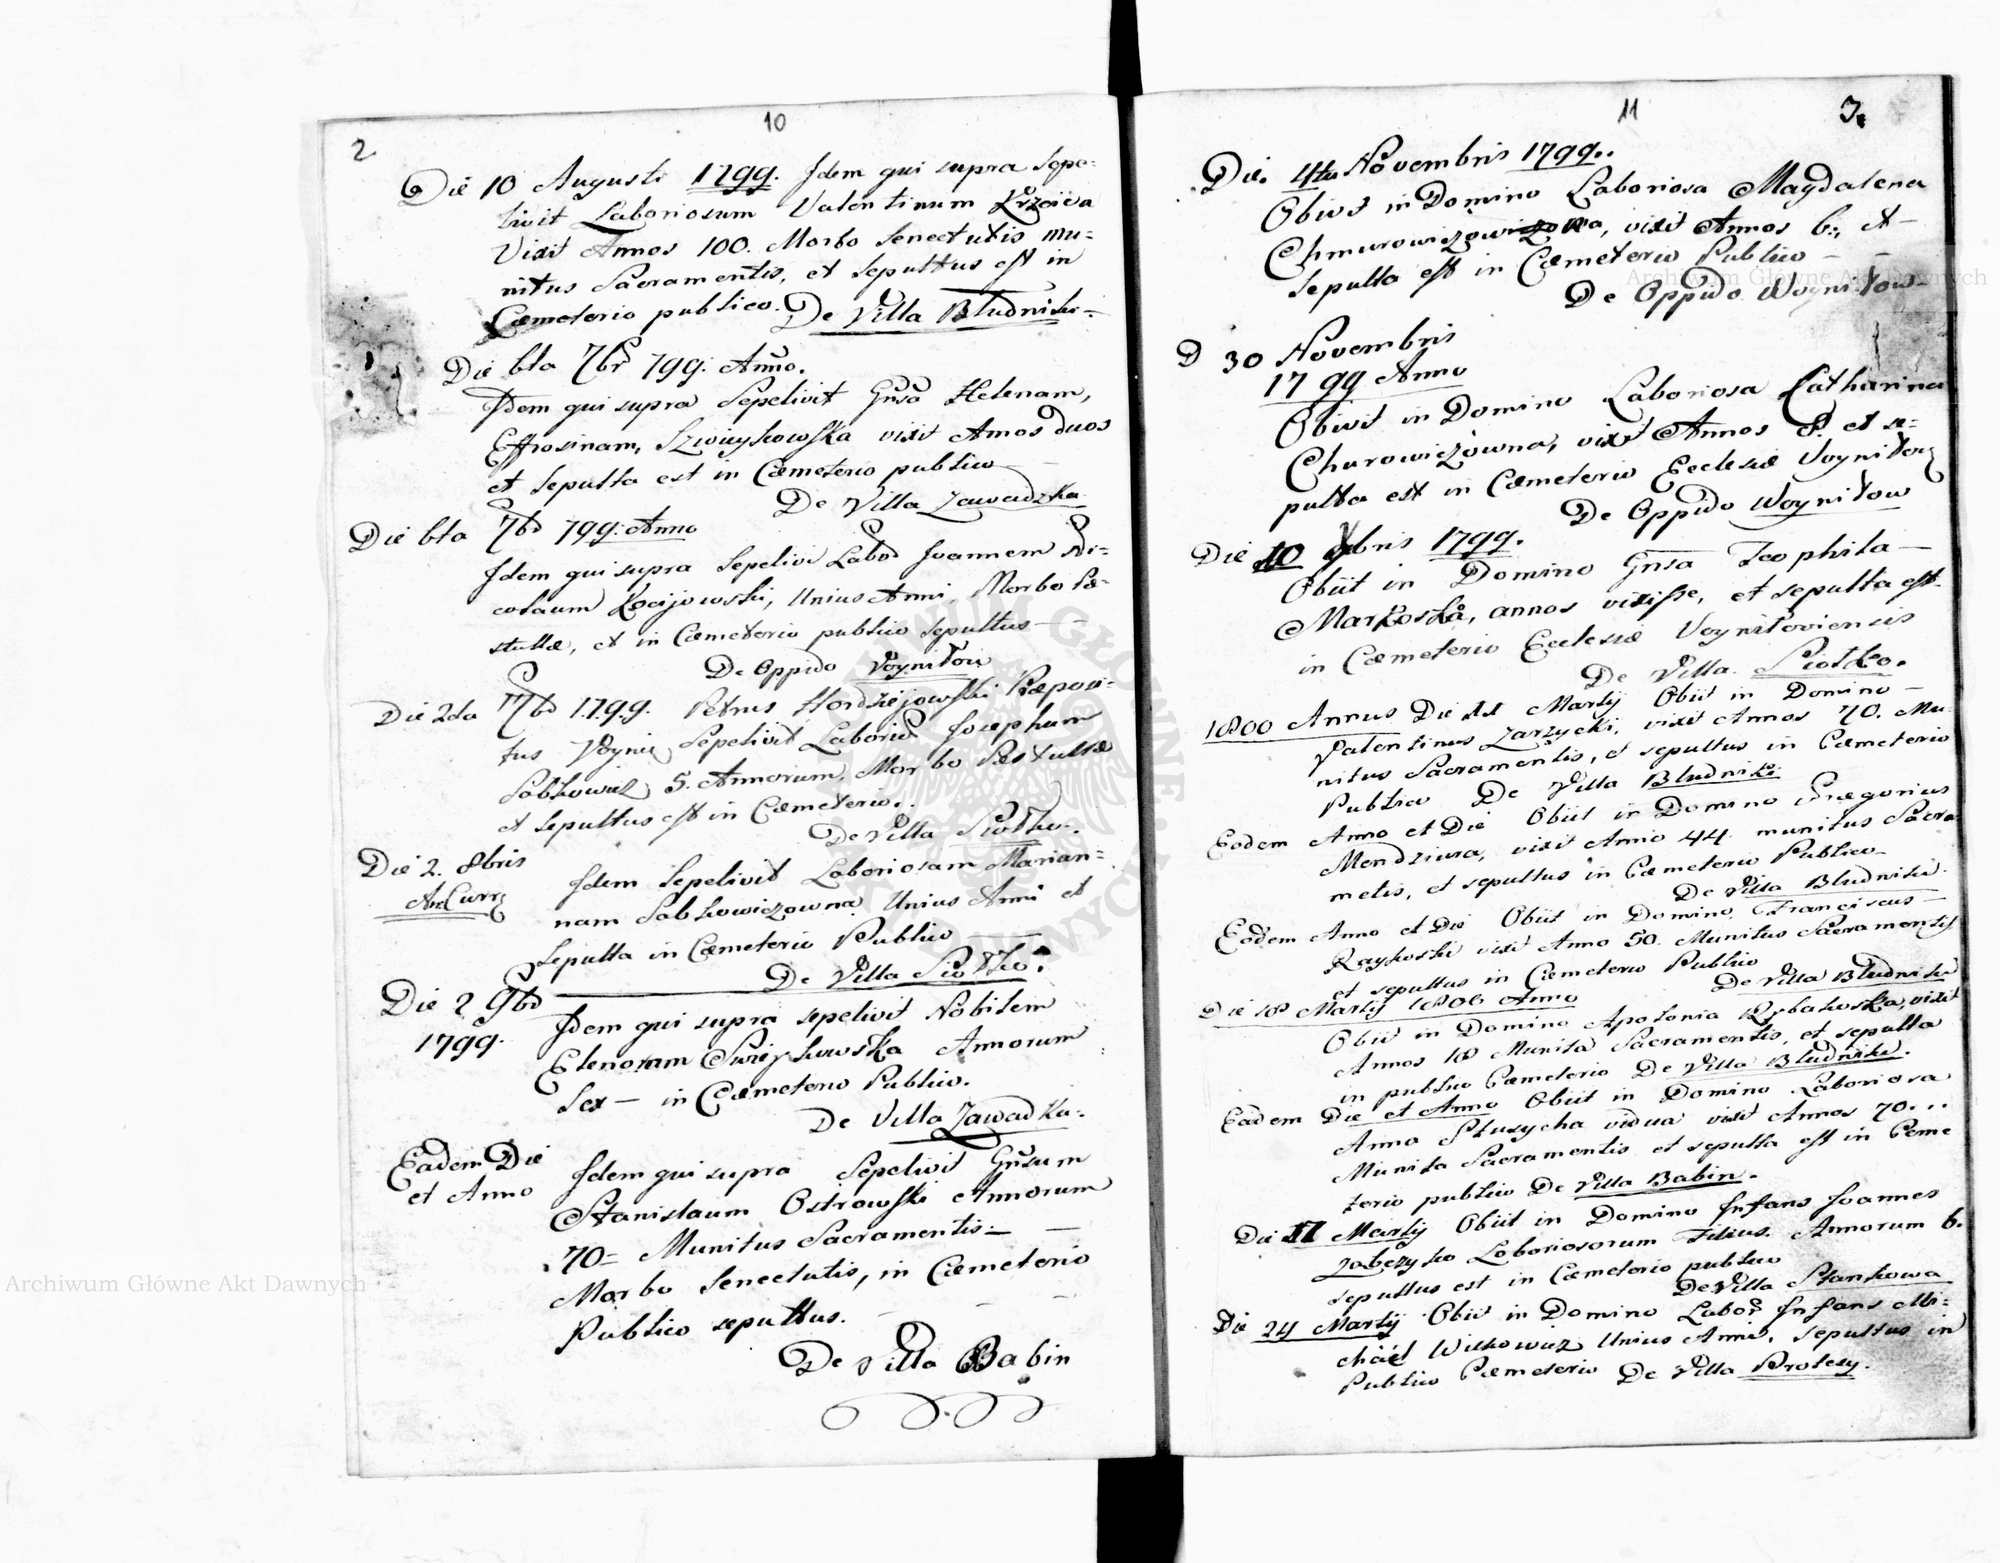 10
2
Die 10 Augusti 1799. Idem qui supra Sepe=
livit Laboriosum Valentinum Krzciva
Vixit Annos 100. Morbo Senectutis mu=
nitus Sacramentis, et Sepultus est in
Cæmeterio publico. De Villa Bludniki=
Die 6ta 7br 799. Anno.
Idem qui supra Sepelivit Gnsa Helenam,
Effrosinam, Szwieykowska vixit Annos duos
et Sepulta est in Cæmeterio publico
De Villa Zawadzka
Die 6ta 7br 799. Anno
Idem qui supra Sepelivi Labor Joannem Ni=
colaum Kocijowski, Unius Anni, Morbo Pæ=
stullæ, et in Cæmeterio publico Sepultus
De Oppido Voynilow
Die 2da 7br 1799. Petrus Hordziejowski Præposi=
tus Voyni Sepelivit Labories Josephum
Sobkowicz 5. Annorum, Morbo Pæstullæ
et Sepultus est in Cæmeterio.
De Villa Siolko.
Die 2. 8bris
An: Curr
Idem Sepelivit Laboriosam Marian=
nam Sobkowiczowna Unius Anni et
Sepulta in Cæmeterio Publico
De Villa Siolko.
Die 2 9br
1799.
Idem qui supra sepelivit Nobilem
Elenoram Swieykowska Annorum
Sex — in Cæmeterio Publico.
De Villa Zawadka.
Eadem Die
et Anno
Idem qui supra Sepelivit Gnsum
Stanislaum Ostrowski Annorum
70= Munitus Sacramentis=
Morbo Senectutis, in Cæmeterio
Publico sepultus.
De Villa Babin
11
3.
Die. 4ta Novembris 1799.
Obivit in Domino Laboriosa Magdalena
Chmurowiczowna, vixit Annos 6., et
Sepulta est in Cæmeterio Publico
De Oppido Woynilow
D 30 Novembris
1799 Anno
Obivit in Domino Laboriosa Catharina
Churowiczowna, vixit Annos 8. et se=
pulta est in Cæmeterio Ecclesiæ Voynilow
De Oppido Woynilow
Die 10 Xbris 1799.
Obiit in Domino Gnsa Teophila
Markoska, annos vixisse, et sepulta est
in Cæmeterio Ecclesiæ Voyniloviensis
De Villa Siolko.
1800 Annus Die 11 Martij Obiit in Domino
Valentinus Zarzycki, vixit Annos 70. Mu=
nitus Sacramentis, et sepultus in Cæmeterio
Publico De Villa Bludniki
Eodem Anno et Die Obiit in Domino Gregorius
Mendziura, vixit Anno 44. munitus Sacra=
metis, et sepultus in Cæmeterio Publico
De Villa Bludniki.
Eodem Anno et Die Obiit in Domino Franciscus
Raykoski vixit Anno 50. Munitus Sacramentis
et sepultus in Cæmeterio Publico
De Villa Bludniki
Die 18 Martij 1800 Anno
Obiit in Domino Apolonia Rybakoska, vixit
Annos 18 Munita Sacramentis, et sepulta
in publico Cæmeterio De Villa Bludniki.
Eadem Die et Anno Obiit in Domino Laboriosa
Anna Slusycha vidua vixit Annos 70...
Munita Sacramentis et sepulta est in Ceme
terio publico De Villa Babin.
Die 17 Martij Obiit in Domino Infans Joannes
Zabczyko Laboriosorum Filius. Annorum 6.
sepultus est in Cæmeterio publico
De Villa Stankowa
Die 24 Martij Obiit in Domino Labor Infans Mi=
chael Witkowicz Unius Anni, Sepultus in
Publico Cæmeterio De Villa Protesy.
Archiwum Główne Akt Dawnych
Archiwum Główne Akt Dawnych
ARCHIWUM GŁÓWNE AKT DAWNYCH